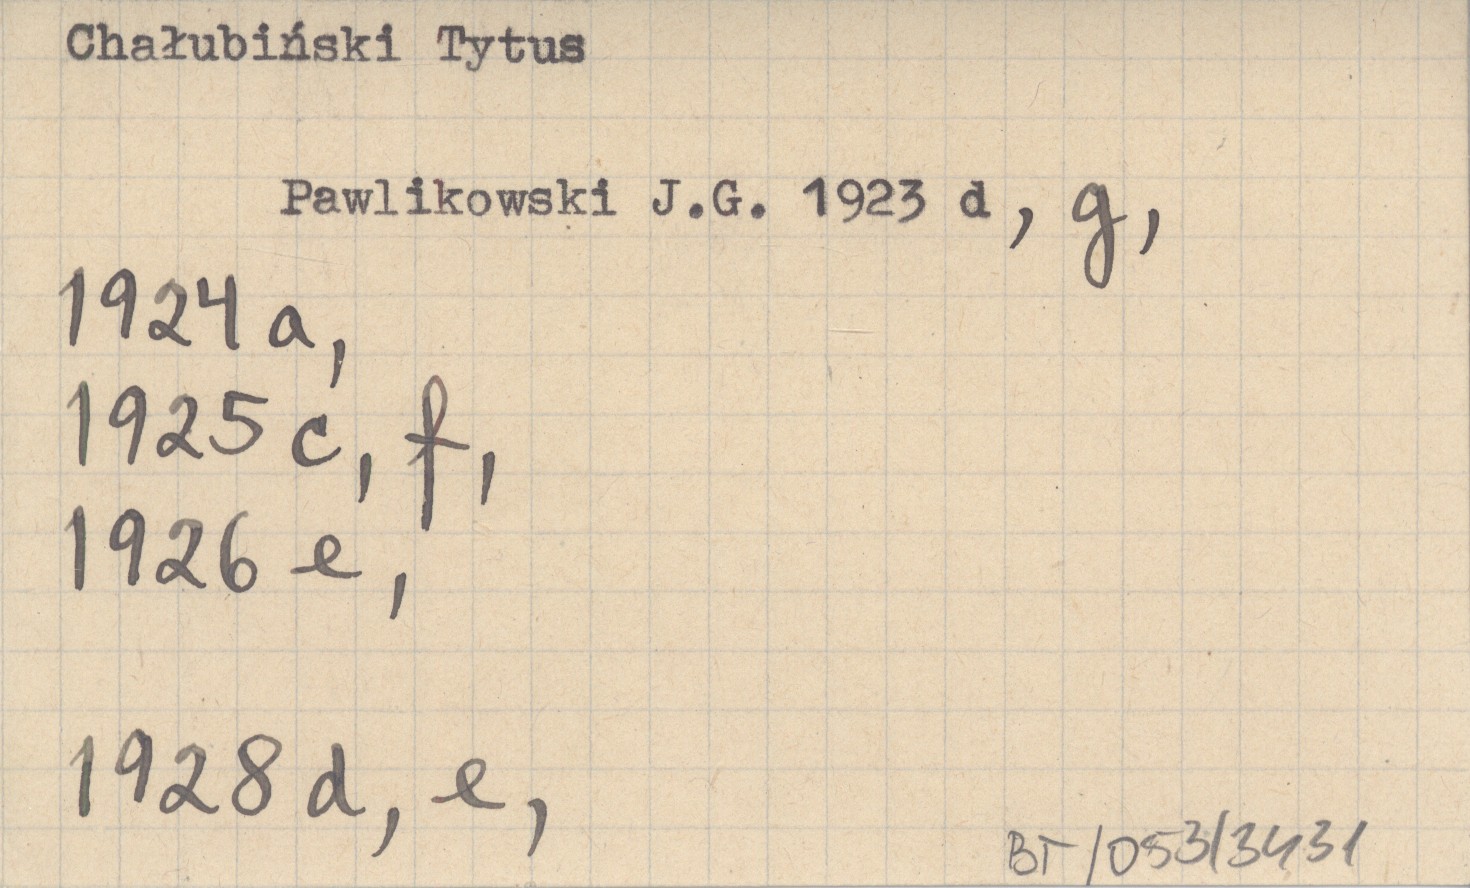 Chałubiński Tytus
Pawlikowski J.G. 1923 d, g,
1924 a,
1925 c, f,
1926 e,
1928 d, e,
BT/053/3431